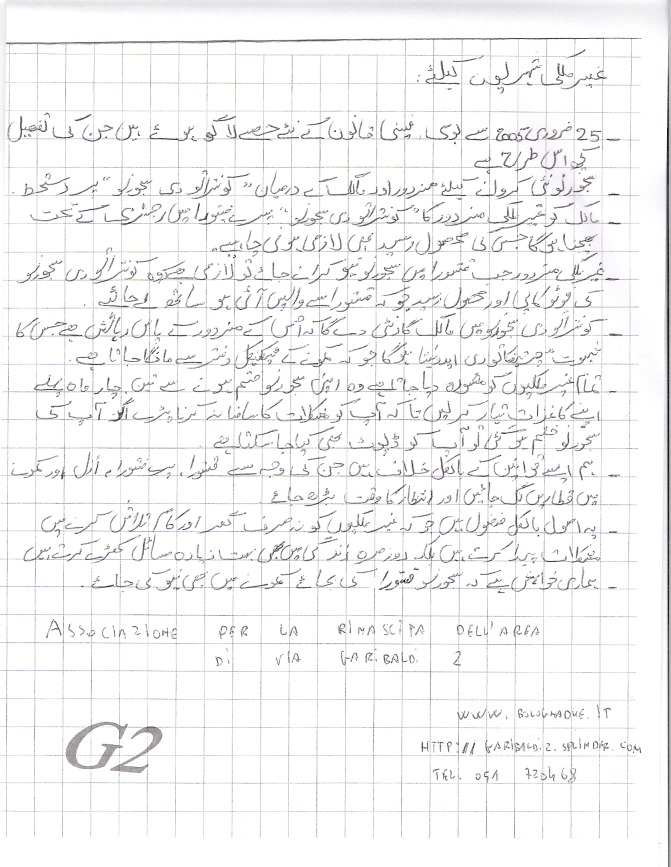 غیر ملکی شہریوں کیلئے:
- 25 فروری 2005 سے بوسی فینی قانون کے نئے حصے لاگو ہوئے ہیں جن کی تفصیل
کچھ اس طرح ہے
- سجورنو نئی کروانے کیلئے مزدور اور مالک کے درمیان "کونتراتو دی سجورنو" پر دستخط.
- مالک کو غیر ملکی مزدور کا "کونتراتو دی سجورنو" پریفتورا میں رجسٹری کے تحت
بھیجنا ہوگا جس کی محصول رسید بھی لازمی ہونی چاہیے.
- غیر ملکی مزدور جب قستورا میں سجورنو نیو کرانے جائے تو لازمی کونتراتو دی سجورنو
کی فوٹو کاپی اور محصول رسید جو کہ قستورا سے واپس آئی ہو ساتھ لے جائے.
- کونتراتو دی سجورنو میں مالک گارنٹی دے گا کہ اس کے مزدور کے پاس رہائش ہے جس کا
ثبوت چرتیفیکاتو دی ایدونیتا ہوگا جو کہ کمونے کے ٹیکنیکل دفتر سے مانگا جاتا ہے.
- تمام غیر ملکیوں کو مشورہ دیا جاتا ہے وہ اپنی سجورنو ختم ہونے سے تین چار ماہ پہلے
اپنے کاغذات تیار کر لیں تا کہ آپ کو مشکلات کا سامنا نہ کرنا پڑے اگر آپ کی
سجورنو ختم ہو گئی تو آپ کو ڈیپوٹ بھی کیا جا سکتا ہے.
- ہم ایسے قوانین کے بالکل خلاف ہیں جن کی وجہ سے قستورا، پریفتورا، أزل اور کمونے
میں قطاریں لگ جائیں اور انتظار کا وقت بڑھ جائے.
- یہ اصول بالکل فضول ہیں جو کہ غیر ملکیوں کو نہ صرف گھر اور کام تلاش کرنے میں
مشکلات پیدا کرتے ہیں بلکہ روزمرہ زندگی میں بھی بہت زیادہ مسائل کھڑے کرتے ہیں
- ہماری خواہش ہے کہ سجورنو قستورا کی بجائے کمونے میں بھی نیو کی جائے.
ASSOCIAZIONE PER LA RINASCITA DELL'AREA
DI VIA GARIBALDI 2
WWW. BOLOGNADUE.IT
HTTP:// GARIBALDI.2. SPLINDER. COM
TEL. 051 720468
G2